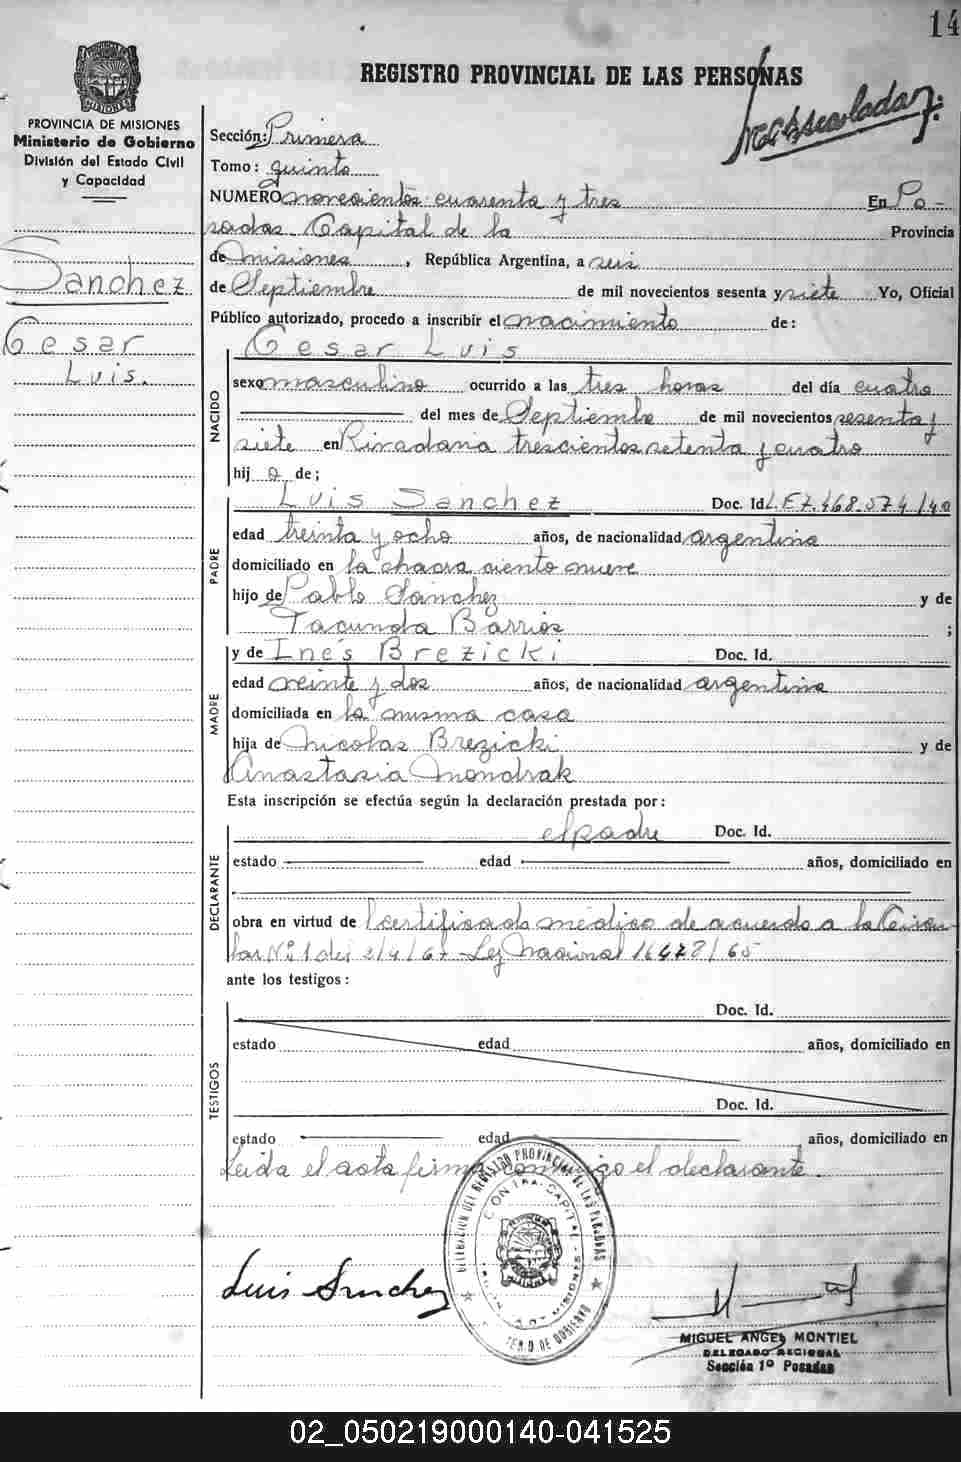 14
REGISTRO PROVINCIAL DE LAS PERSONAS
PROVINCIA DE MISIONES
Ministerio de Gobierno
División del Estado Civil
y Capacidad
Sección: Primera
Tomo: quinto
NUMERO novecientos cuarenta y tres En Po-
sadas Capital de la Provincia
de Misiones, República Argentina, a seis
de Septiembre de mil novecientos sesenta y siete Yo, Oficial
Público autorizado, procedo a inscribir el nacimiento de:
Sanchez
Cesar
Luis.
Cesar Luis
NACIDO
sexo masculino ocurrido a las tres horas del día cuatro
del mes de Septiembre de mil novecientos sesenta y
siete en Rivadavia trescientos setenta y cuatro
hij o de;
PADRE
Luis Sanchez Doc. Id. L.E 7.468.574/40
edad treinta y ocho años, de nacionalidad argentina
domiciliado en la chacra ciento nueve
hijo de Pablo Sánchez y de
Facunda Barrios ;
MADRE
y de Inés Brezicki Doc. Id.
edad veinte y dos años, de nacionalidad argentina
domiciliada en la misma casa
hija de Nicolas Brezicki y de
Anastasia Mondrak
Esta inscripción se efectúa según la declaración prestada por:
DECLARANTE
el padre Doc. Id.
estado edad años, domiciliado en
obra en virtud de certificado médico de acuerdo a la Circu-
lar Nº 1 del 2/4/67 - Ley Nacional 16478/65
ante los testigos:
TESTIGOS
Doc. Id.
estado edad años, domiciliado en
Doc. Id.
estado edad años, domiciliado en
Leida el acta firma conmigo el declarante.
DELEGACION DEL REGISTRO PROVINCIAL DE LAS PERSONAS
MISIONES
Luis Sanchez
MIGUEL ANGEL MONTIEL
DELEGADO REGIONAL
Sección 1º Posadas
02_050219000140-041525